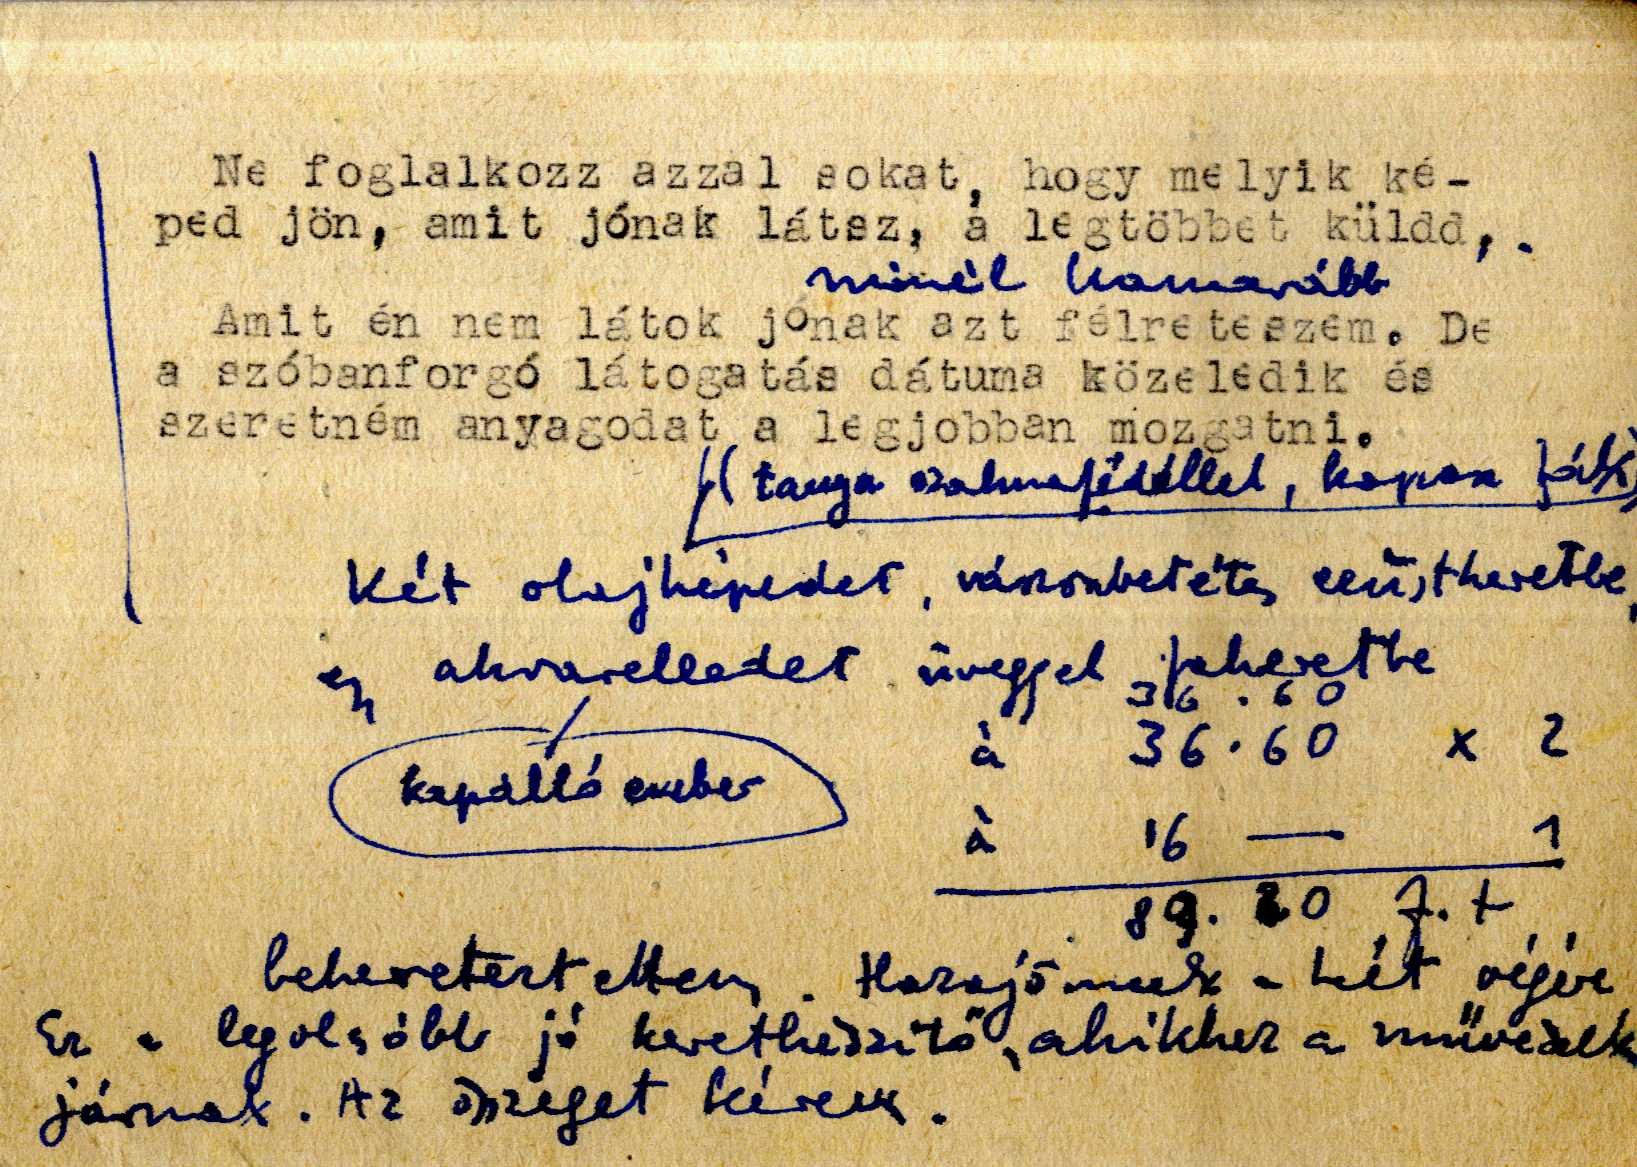 Ne foglalkozz azzal sokat, hogy melyik ké-
ped jön, amit jónak látsz, a legtöbbet küldd,.
minél hamarább
Amit én nem látok jónak azt félreteszem. De
a szóbanforgó látogatás dátuma közeledik és
szeretném anyagodat a legjobban mozgatni.
(tanya szalmafedéllel, kopasz fák)
Két olajképedet, vászonbetétes ezüstkeretbe,
egy akvarelledet üveggel fakeretbe
36.60
à 36.60 x 2
kapálló ember
à 16 — 1
89.20 F.t
bekereteztettem. Hazajönnek a hét végére
Ez a legolcsóbb jó keretkészítő, akikhez a művészek
járnak. Az összeget kérem.